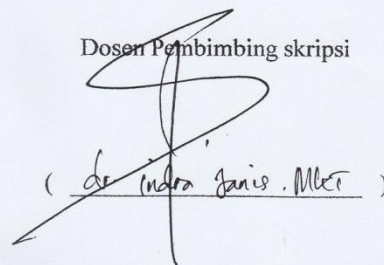 Dosen Pembimbing skripsi
( dr indra Janis . MKT )